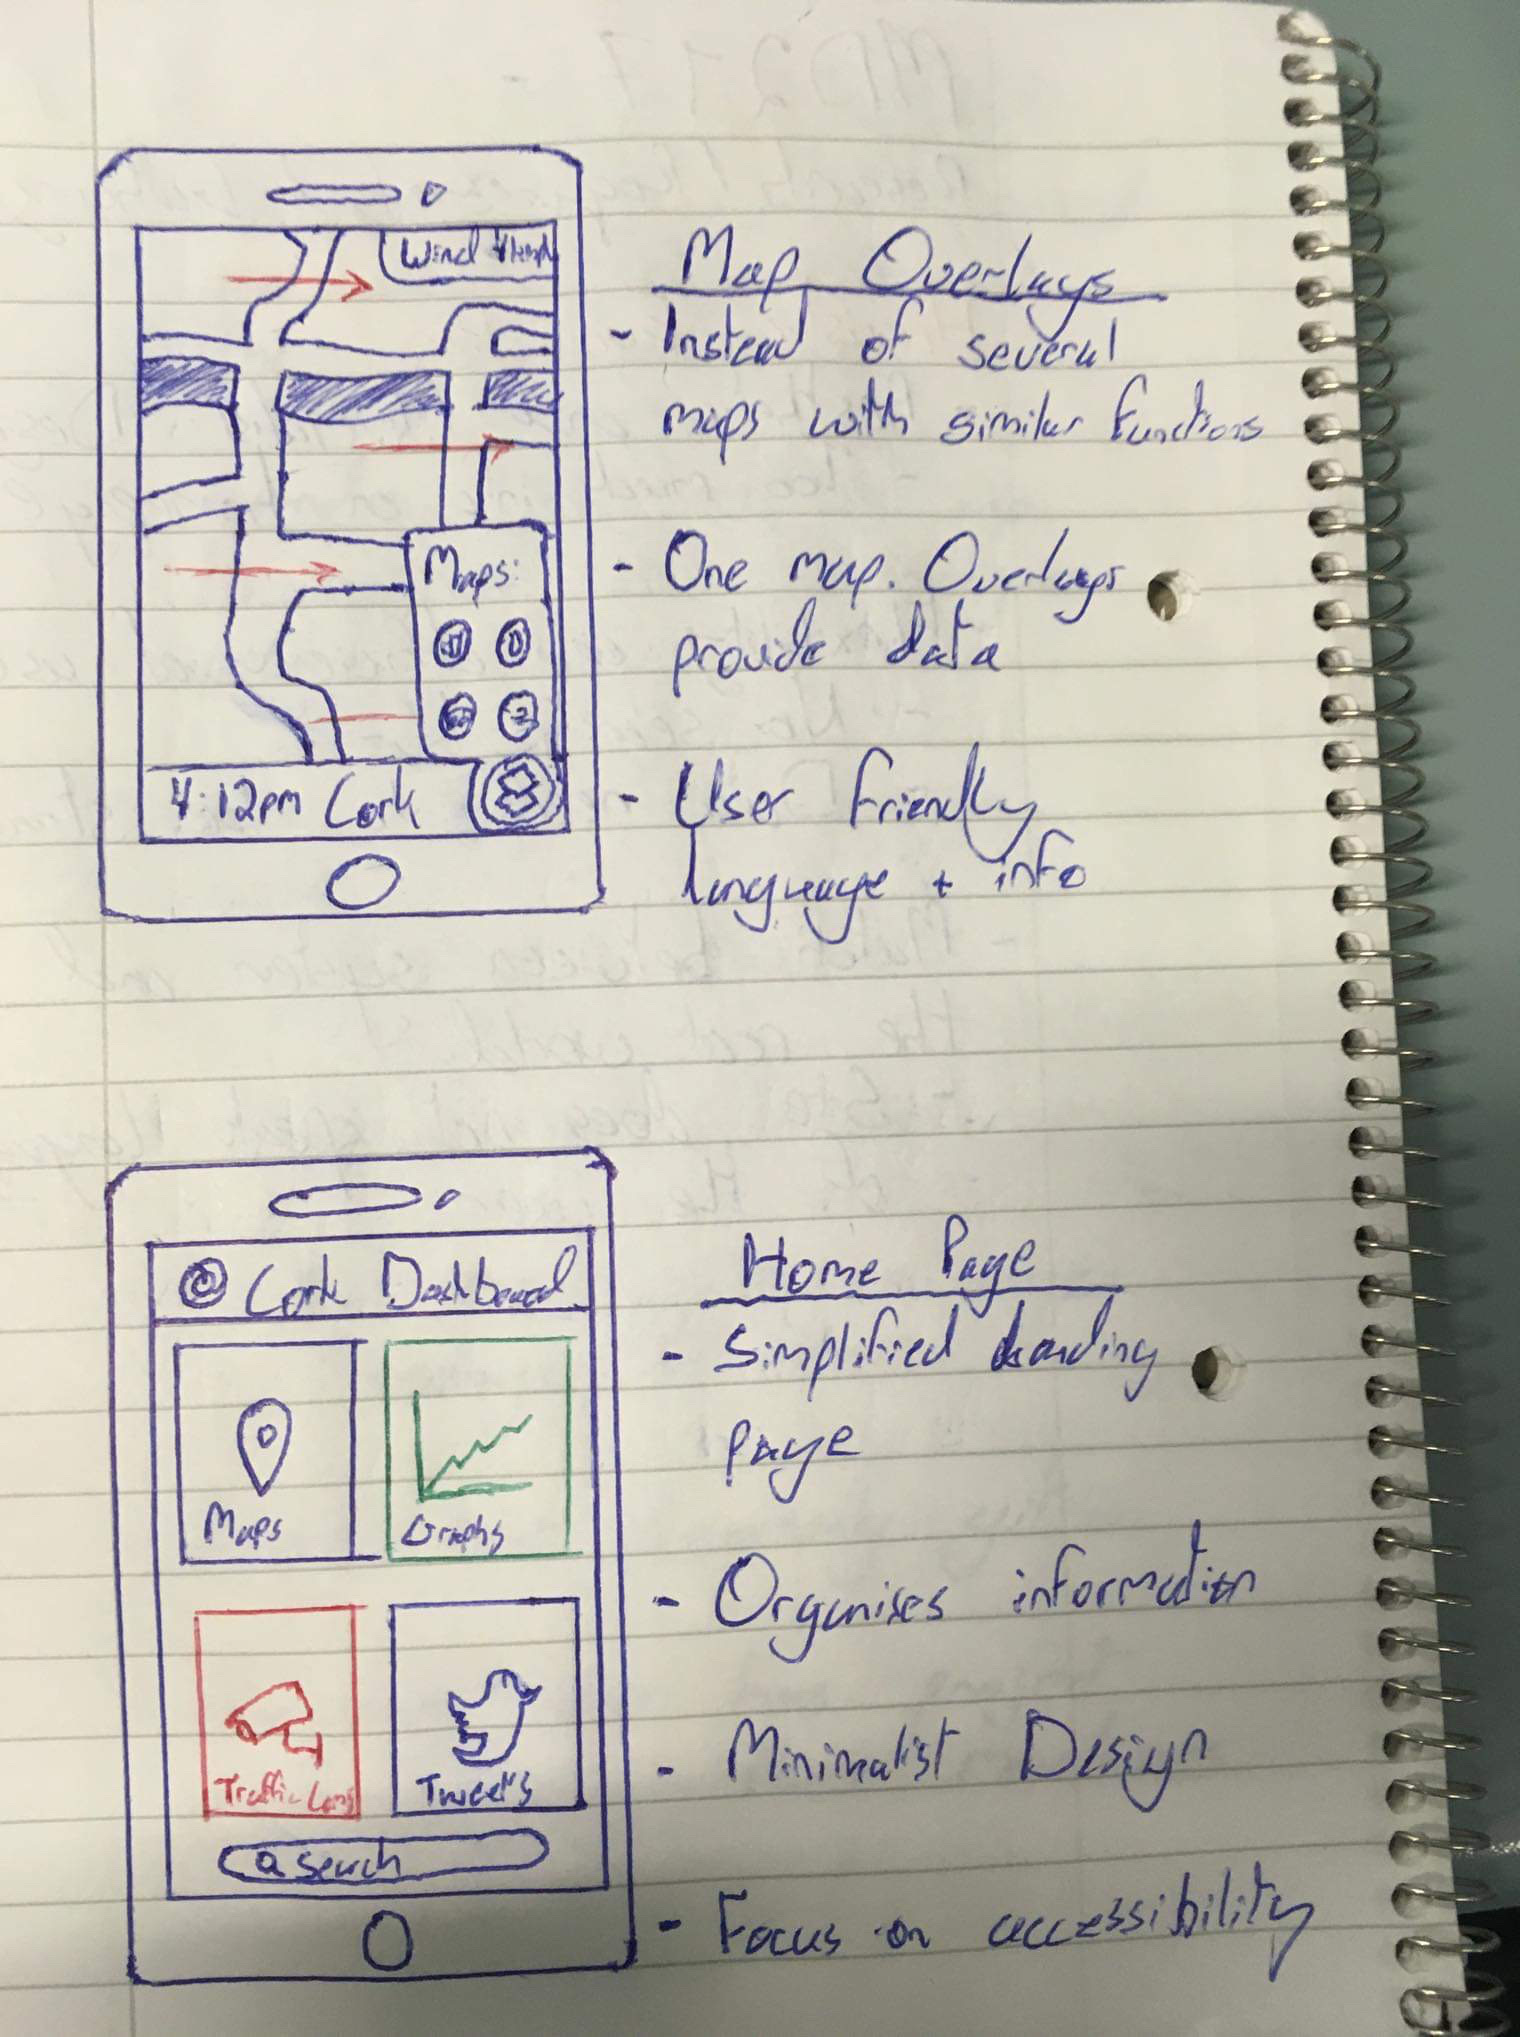 Wind
Maps:
4:12pm Cork
Map Overlays
- Instead of several
maps with similar functions
- One map. Overlays
provide data
- User friendly
language + info
Cork Dashboard
Maps
Graphs
Traffic Cams
Tweets
search
Home Page
- Simplified landing
page
- Organises information
- Minimalist Design
- Focus on accessibility